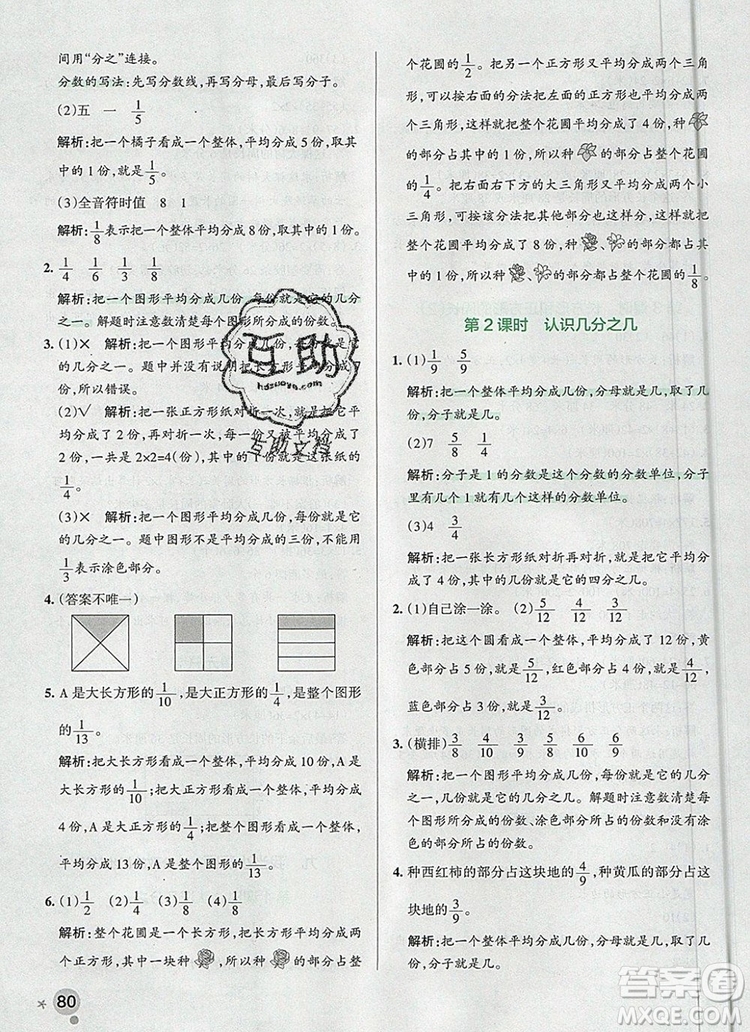 间用“分之”连接。
分数的写法:先写分数线,再写分母,最后写分子。
(2)五 一 1/5
解析:把一个橘子看成一个整体,平均分成 5 份,取其
中的 1 份,就是 1/5。
(3)全音符时值 8 1
解析:1/8表示把一个整体平均分成 8 份,取其中的 1 份。
2. 1/4 1/6 1/3 1/8
解析:把一个图形平均分成几份,每份就是它的几分
之一。解题时注意数清楚每个图形所分成的份数。
3. (1)✕ 解析:把一个图形平均分成几份,每份就是它
的几分之一。题中没有说明把长方形平均分成
几份,所以错误。
(2)✓ 解析:把一张正方形纸对折一次,就是把它平
均分成了 2 份,再对折一次,每一份又被平均分成了
2 份,一共是 2×2=4(份),其中的一份就是这张纸的
1/4。
(3)✕ 解析:把一个图形平均分成几份,每份就是它
的几分之一。题中图形不是平均分成的三份,不能用
1/3表示涂色部分。
4. (答案不唯一)
5. A 是大长方形的1/10,是大正方形的1/4,是整个图形
的1/13。
解析:把大长方形看成一个整体,平均分成 10 份,A 是
大长方形的1/10;把大正方形看成一个整体,平均分成
4 份,A 是大正方形的1/4;把整个图形看成一个整体,
平均分成 13 份,A 是整个图形的1/13。
6. (1)1/2 (2)1/4 (3)1/8 (4)1/8
解析:整个花圃是一个长方形,把长方形平均分成两
个正方形,其中一块种 的部分占整
* 80
个花圃的1/2。把另一个正方形又平均分成两个三角
形,再按右面的分法把左面的正方形也平均分成
两个三角形,这样就把整个花圃平均分成了 4 份,种
的部分占其中的 1 份,所以种 的部分占整个花圃的
1/4。把右面右下方的大三角形又平均分成两个小
三角形,按这种分法把其他部分也这样分,这样就把
整个花圃平均分成了 8 份,种 的部分占其
中的 1 份,所以种 的部分占整个花圃的1/8。
第 2 课时 认识几分之几
1. (1)1/9 5/9
解析:把一个整体平均分成几份,分母就是几,取了几
份,分子就是几。
(2)7 5/8 1/8
解析:分子是 1 的分数是这个分数的分数单位,分子
里有几个 1 就有几个这样的分数单位。
(3)4 3/4
解析:把一张长方形纸对折再对折,就是把它平均分
成了 4 份,每份就是它的四分之几。
4. (1)自己涂一涂。 (2)5/12 4/12 3/12
解析:把这个圆看成一个整体,平均分成了 12 份,黄
色部分占 5 份,就是5/12,红色部分占 4 份,就是4/12,
蓝色部分占 3 份,就是3/12。
3. (横排)3/8 4/6 3/9 6/9
解析:把一个图形平均分成几份,其中的每份就是它
的几分之一。解题时注意数清楚每个图形平均分成
的份数和涂色部分所占的份数。
4. 种西红柿的部分占这块地的4/9,种黄瓜的部分占这
块地的3/9。
解析:把这块地看成一个整体,平均分成了 9 份,种西
红柿的部分占 4 份,种黄瓜的部分占 3 份。
互助
hdzuoye.com
互助文档
答案圈
MXQE.COM